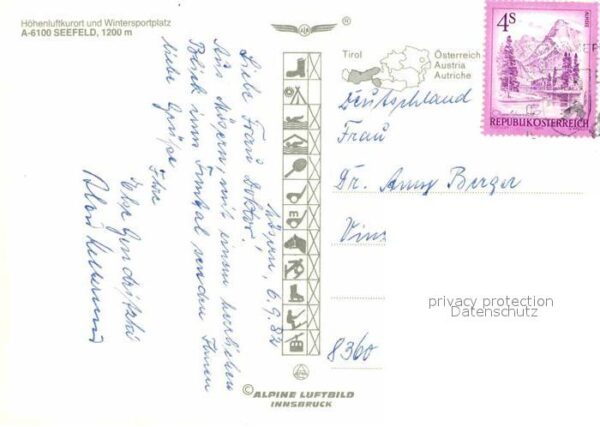 Höhenluftkurort und Wintersportplatz
A-6100 SEEFELD, 1200 m
Mösern, 6.9.82
Liebe Frau Doktor!
Aus Mösern mit einem herrlichen
Blick ins Inntal senden Ihnen
liebe Grüße
Ihre
Tirol
Österreich
Austria
Autriche
4S
REPUBLIK ÖSTERREICH
Deutschland
Frau
Dr. Anny Berger
8360
privacy protection
Datenschutz
© ALPINE LUFTBILD
INNSBRUCK